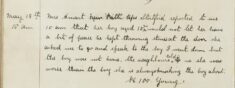 May 18th Mrs Smart reported to me
10 am that her boy aged 13 would not let her have
a bit of peace he kept throwing stones at the door she
asked me to go and speak to the boy I went down but
the boy was not home. The neighbours told us she was
worse than the boy she is always the boy about.
PC 100 Young.